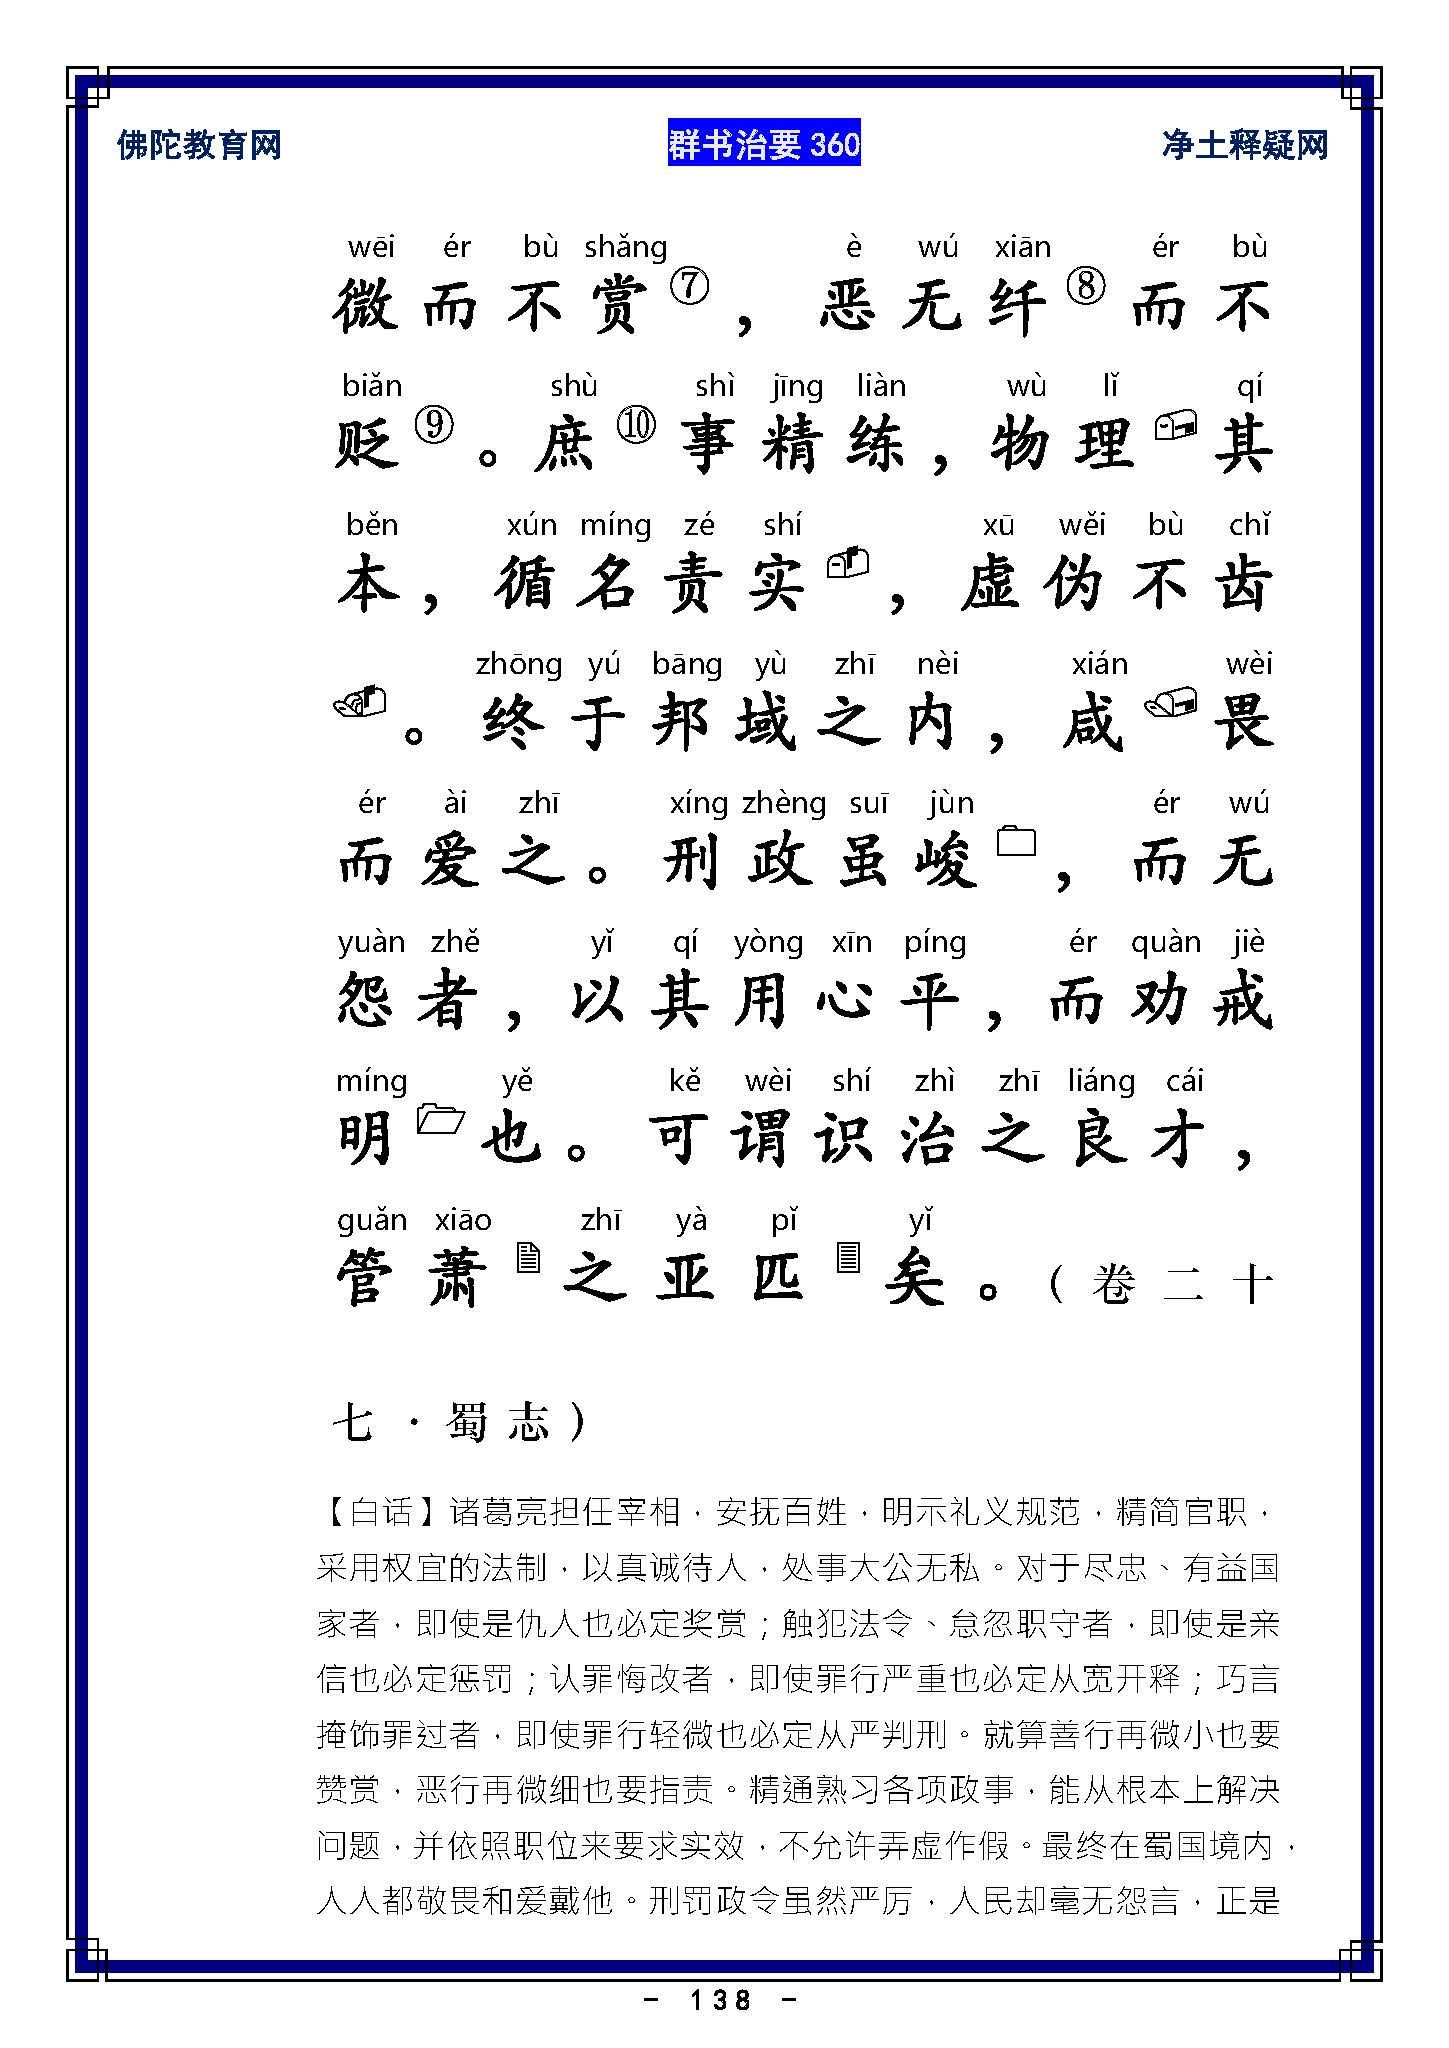 佛陀教育网 群书治要 360 净土释疑网
wēi ér bù shǎng è wú xiān ér bù
微而不赏⑦，恶无纤⑧而不
biǎn shù shì jīng liàn wù lǐ qí
贬⑨。庶⑩事精练，物理其
běn xún míng zé shí xū wěi bù chǐ
本，循名责实，虚伪不齿
zhōng yú bāng yù zhī nèi xián wèi
。终于邦域之内，咸畏
ér ài zhī xíng zhèng suī jùn ér wú
而爱之。刑政虽峻，而无
yuàn zhě yǐ qí yòng xīn píng ér quàn jiè
怨者，以其用心平，而劝戒
míng yě kě wèi shí zhì zhī liáng cái
明也。可谓识治之良才，
guǎn xiāo zhī yà pǐ yǐ
管萧之亚匹矣。（卷二十
七·蜀志）
【白话】诸葛亮担任宰相，安抚百姓，明示礼义规范，精简官职，
采用权宜的法制，以真诚待人，处事大公无私。对于尽忠、有益国
家者，即使是仇人也必定奖赏；触犯法令、怠忽职守者，即使是亲
信也必定惩罚；认罪悔改者，即使罪行严重也必定从宽开释；巧言
掩饰罪过者，即使罪行轻微也必定从严判刑。就算善行再微小也要
赞赏，恶行再微细也要指责。精通熟习各项政事，能从根本上解决
问题，并依照职位来要求实效，不允许弄虚作假。最终在蜀国境内，
人人都敬畏和爱戴他。刑罚政令虽然严厉，人民却毫无怨言，正是
- 138 -